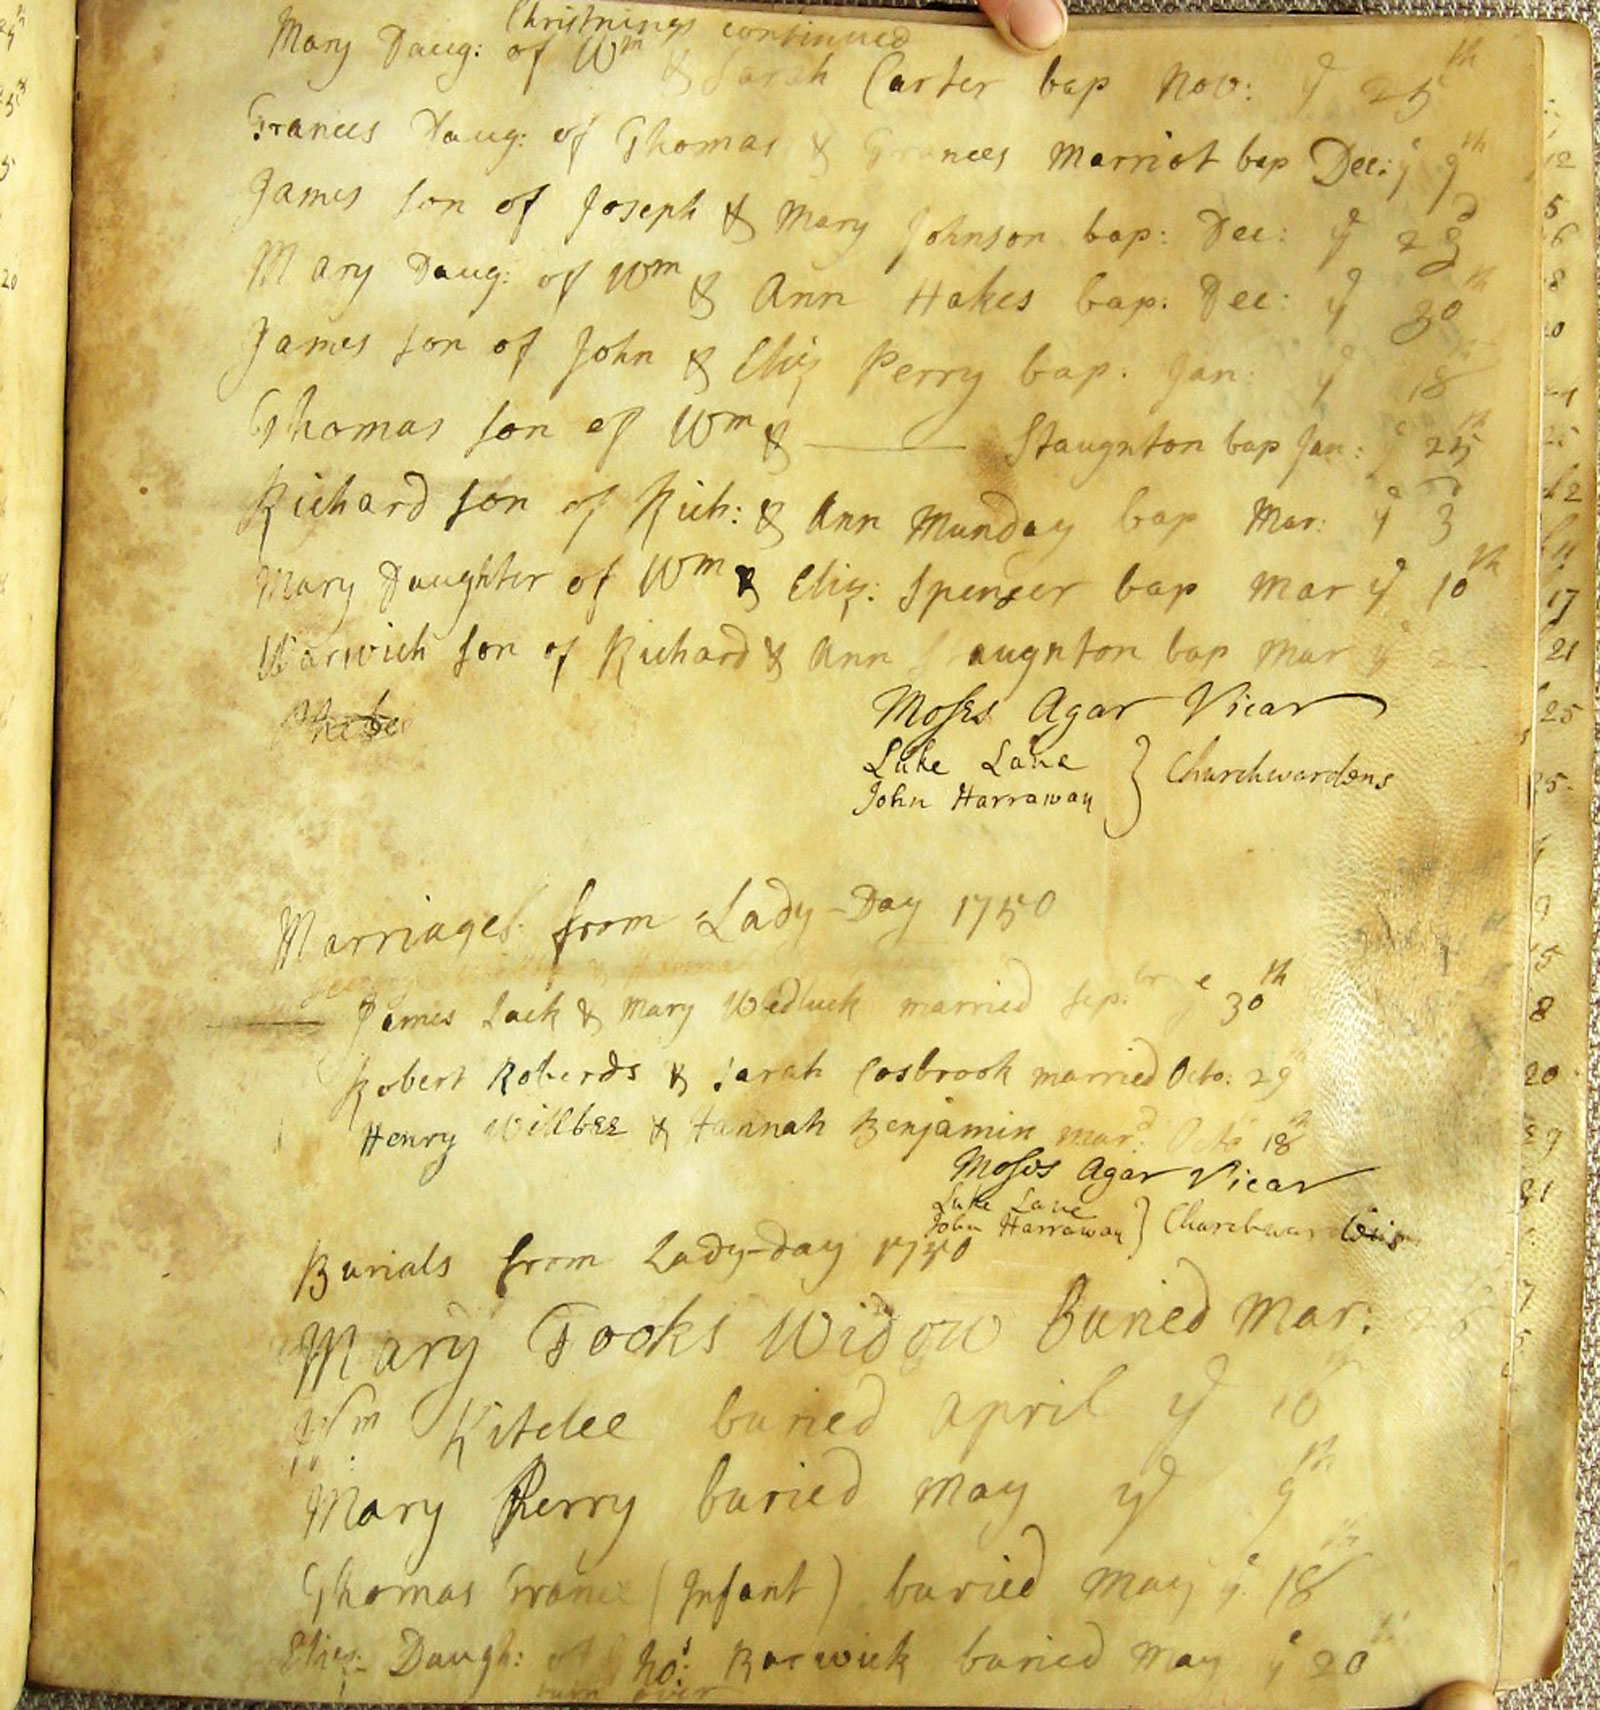 Christnings continued
Mary Daug: of Wm & Sarah Carter bap Nov: ye 25th
Frances Daug: of Thomas & Frances Marriot bap Dec: ye 9th
James son of Joseph & Mary Johnson bap: Dec: ye 23d
Mary Daug: of Wm & Ann Hakes bap: Dec: ye 30th
James son of John & Eliz Perry bap. Jan: ye 18
Thomas son of Wm & ——— Staughton bap Jan: ye 25th
Richard son of Rich: & Ann Munday bap Mar: ye 3d
Mary Daughter of Wm & Eliz: Spencer bap Mar ye 10th
Warwick son of Richard & Ann Staughton bap Mar ye
Phebe
Moses Agar Vicar
Luke Lane
John Harraway } Churchwardens
Marriages from Lady-Day 1750
James Lack & Mary Wedluck married Sep:br ye 30th
Robert Roberds & Sarah Cosbrook married Octo: 29
Henry Willbee & Hannah Benjamin mard: Octo 18th
Moses Agar Vicar
Luke Lane
John Harraway } Churchwardens
Burials from Lady-day 1750
Mary Tooks Widow Buried Mar:
Wm Kitelee buried April ye 10
Mary Perry buried May ye 9th
Thomas (Infant) buried May ye 18th
Eliz: Daugh: of Thos: Barwick buried May ye 20
turn over